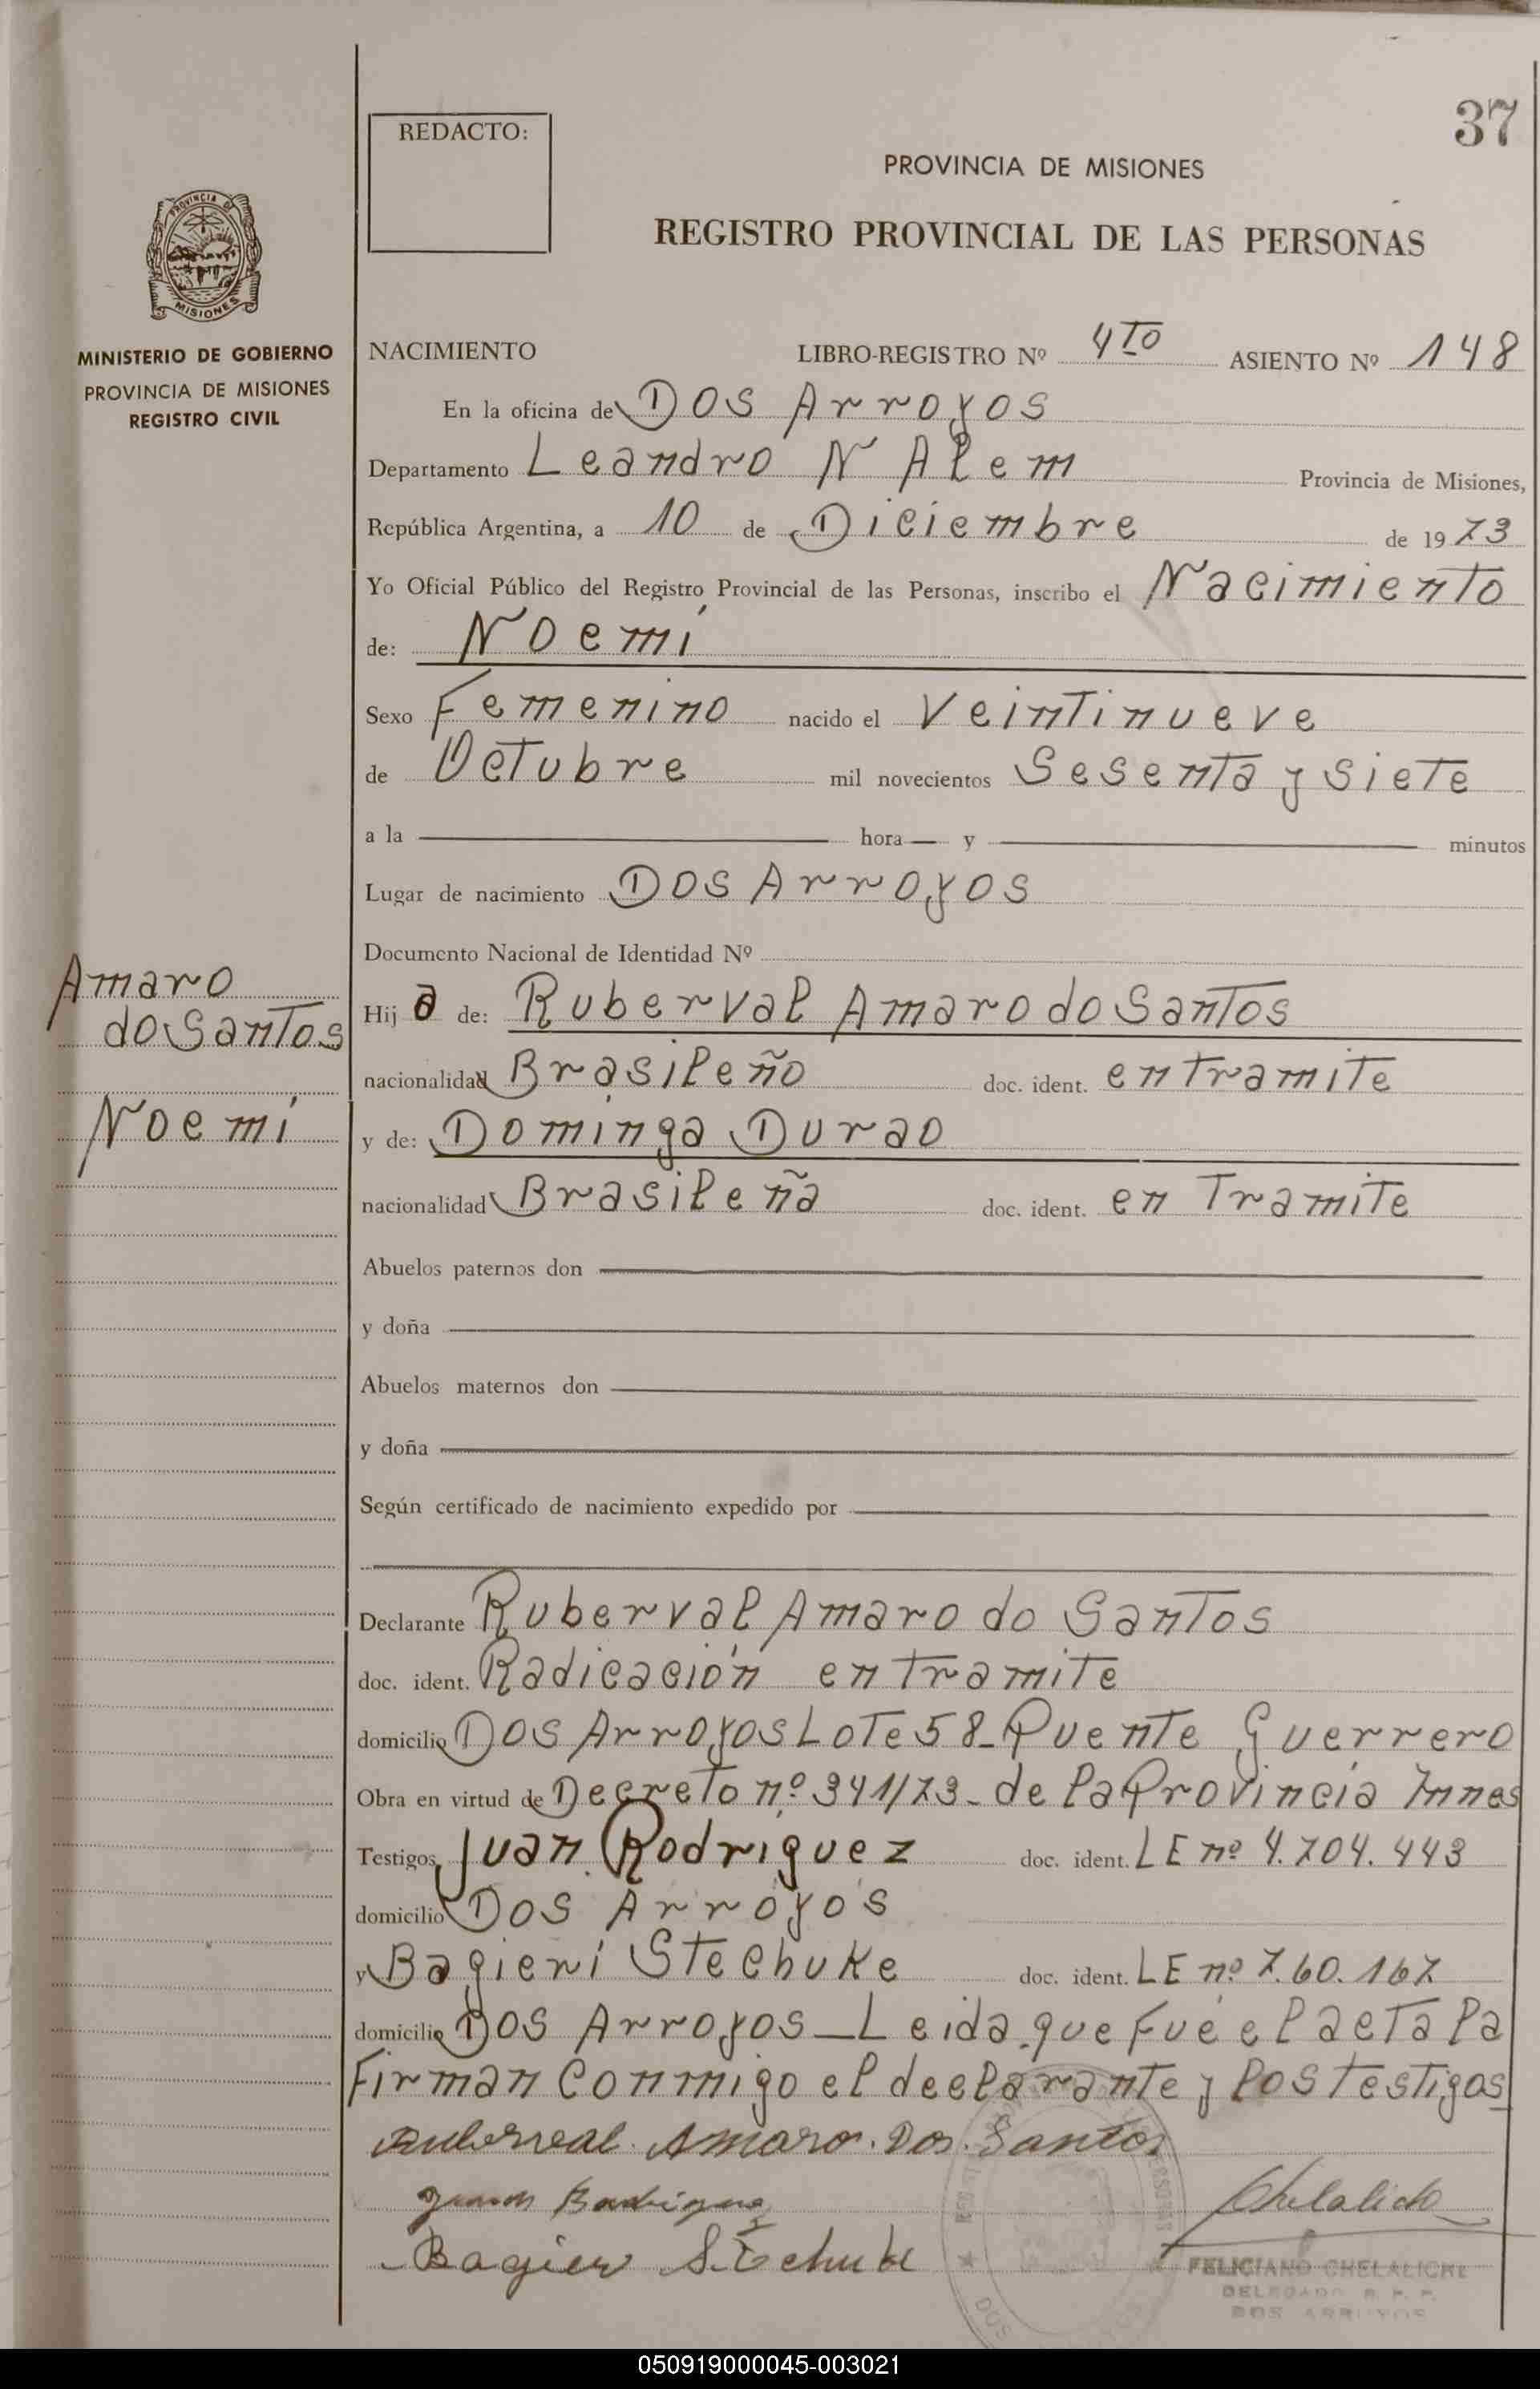 37
REDACTO:
PROVINCIA DE MISIONES
REGISTRO PROVINCIAL DE LAS PERSONAS
PROVINCIA DE
MISIONES
MINISTERIO DE GOBIERNO
PROVINCIA DE MISIONES
REGISTRO CIVIL
NACIMIENTO LIBRO-REGISTRO Nº 4TO ASIENTO Nº 148
En la oficina de Dos Arroyos
Departamento Leandro N Alem Provincia de Misiones,
República Argentina, a 10 de Diciembre de 1973
Yo Oficial Público del Registro Provincial de las Personas, inscribo el Nacimiento
de: Noemí
Sexo Femenino nacido el Veintinueve
de Octubre mil novecientos Sesenta y siete
a la hora y minutos
Lugar de nacimiento Dos Arroyos
Documento Nacional de Identidad Nº
Amaro
do Santos
Noemí
Hij a de: Ruberval Amaro do Santos
nacionalidad Brasileño doc. ident. en tramite
y de: Dominga Durao
nacionalidad Brasileña doc. ident. en Tramite
Abuelos paternos don
y doña
Abuelos maternos don
y doña
Según certificado de nacimiento expedido por
Declarante Ruberval Amaro do Santos
doc. ident. Radicación en tramite
domicilio Dos Arroyos Lote 58_ Puente Guerrero
Obra en virtud de Decreto nº 341/73_ de la Provincia Mnes
Testigos Juan Rodriguez doc. ident. LE nº 4.704.443
domicilio Dos Arroyos
y Bagieni Stechuke doc. ident. LE nº 7.60.167
domicilio Dos Arroyos_Leida que fué el acta la
firman conmigo el declarante y los testigos
Ruberval. Amaro. Dos. Santos
Juan Rodriguez
Chelaliche
Bagien Stechuke
FELICIANO CHELALICHE
DELEGADO R. P. P.
DOS ARROYOS
DOS
050919000045-003021